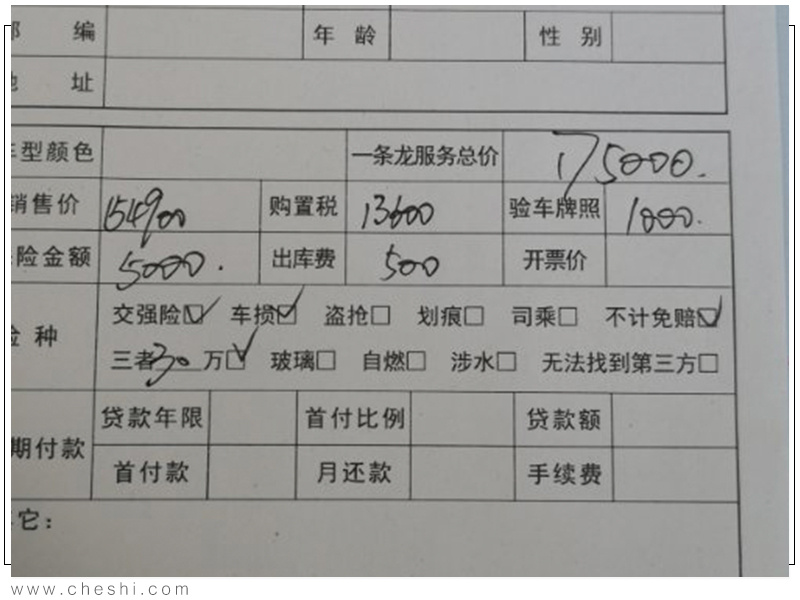 编 年龄 性别
址
车型颜色 一条龙服务总价 175000.
销售价 154900 购置税 13600 验车牌照 1000.
险金额 5000. 出库费 500 开票价
险种 交强险☑ 车损☑ 盗抢☐ 划痕☐ 司乘☐ 不计免赔☑
三者30万☑ 玻璃☐ 自燃☐ 涉水☐ 无法找到第三方☐
期付款 贷款年限 首付比例 贷款额
首付款 月还款 手续费
它：
www.cheshi.com